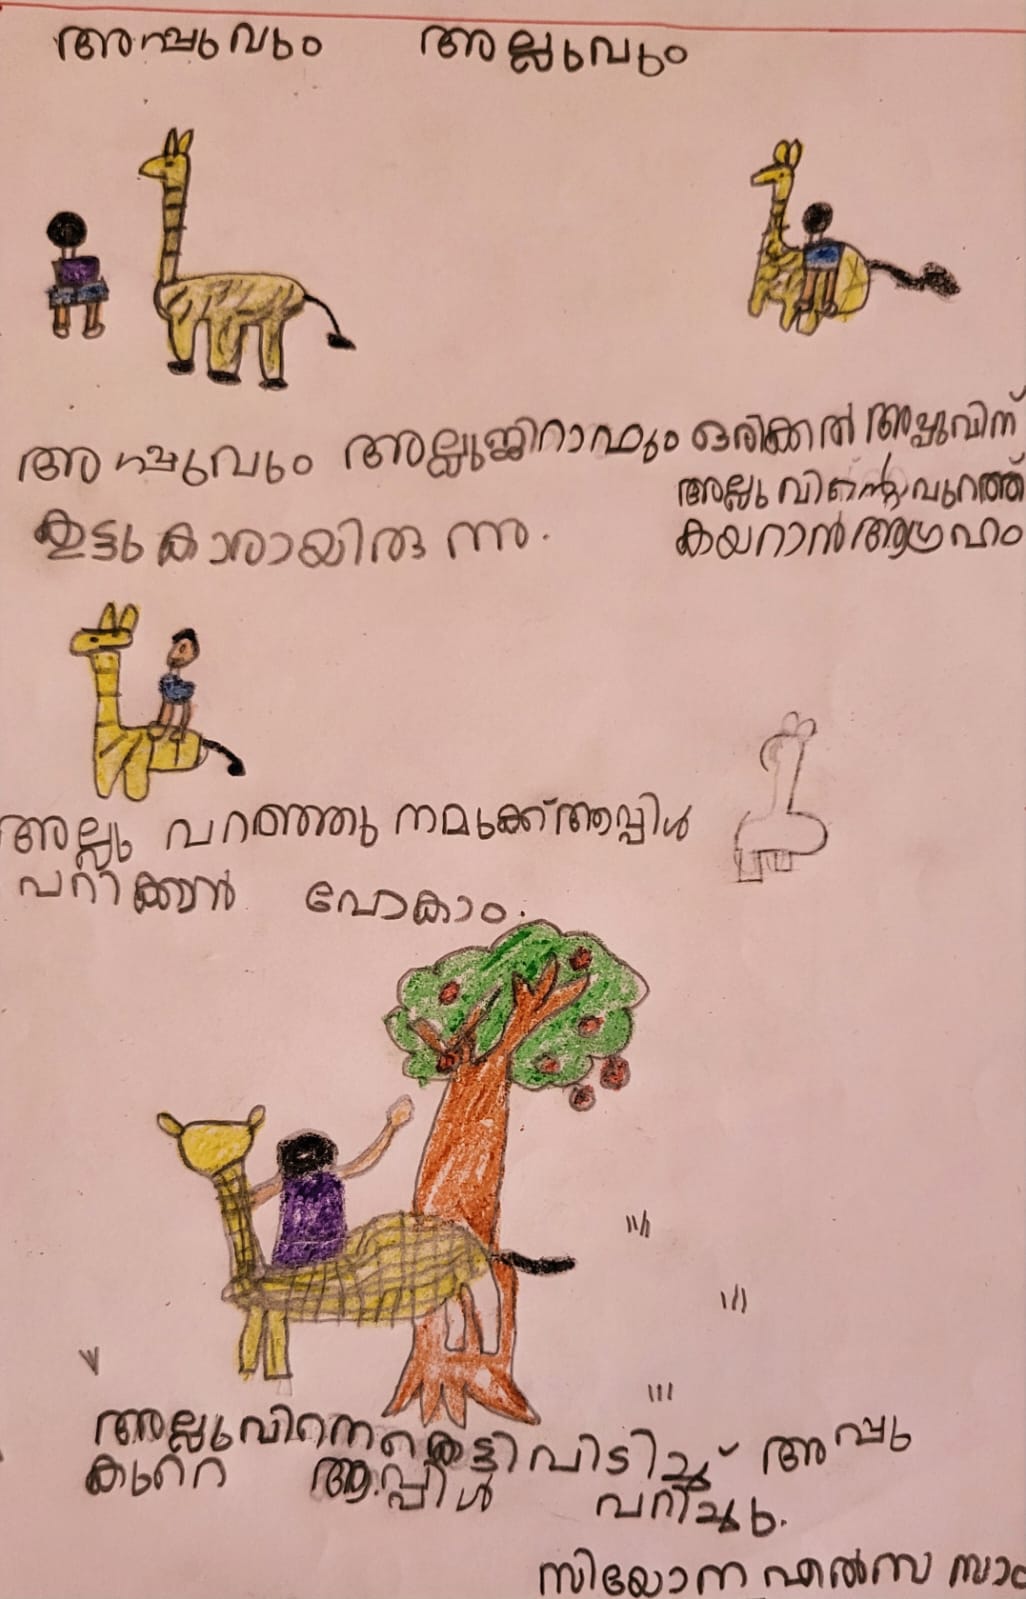 അപ്പുവും അല്ലുവും
അപ്പുവും അല്ലുജിറാഫും
കുട്ടുകാരായിരുന്നു.
ഒരിക്കൽ അപ്പുവിന്
അല്ലുവിൻ്റെ പുറത്ത്
കയറാൻ ആഗ്രഹം
അല്ലു പറഞ്ഞു നമുക്ക് ആപ്പിൾ
പറിക്കാൻ പോകാം.
അല്ലുവിനെ കെട്ടിപിടിച്ച് അപ്പു
കുറെ ആപ്പിൾ പറിച്ചു.
സിയോന എൽസ സാം